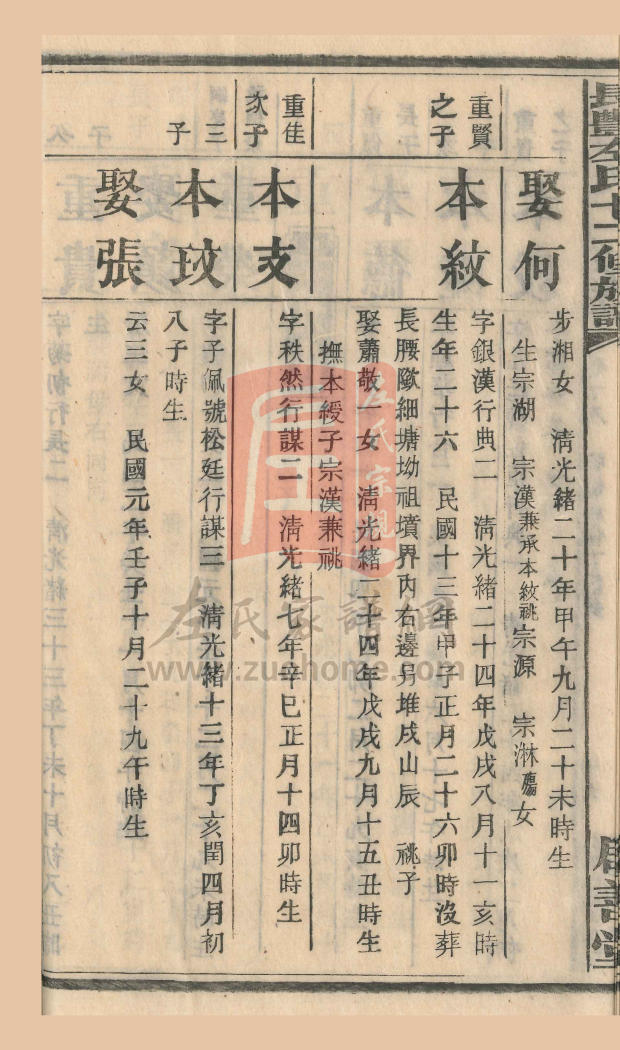 長豐左氏十二修族譜
娶何
步湘女 清光緒二十年甲午九月二十未時生
生宗湖 宗漢兼承本紋祧宗源 宗淋殤女
重賢之子
本紋
字銀漢行典二 清光緒二十四年戊戌八月十一亥時
生年二十六 民國十三年甲子正月二十六卯時沒葬
長腰隊細塘坳祖墳界內右邊另堆戌山辰 祧子
娶蕭敬一女 清光緒二十四年戊戌九月十五丑時生
撫本綬子宗漢兼祧
重佳次子
本支
字秩然行謀二 清光緒七年辛巳正月十四卯時生
三子
本玟
字子佩號松廷行謀三 清光緒十三年丁亥閏四月初
八子時生
娶張
云三女 民國元年壬子十月二十九午時生
善堂
左氏宗親
左氏家譜网
www.zuohome.com